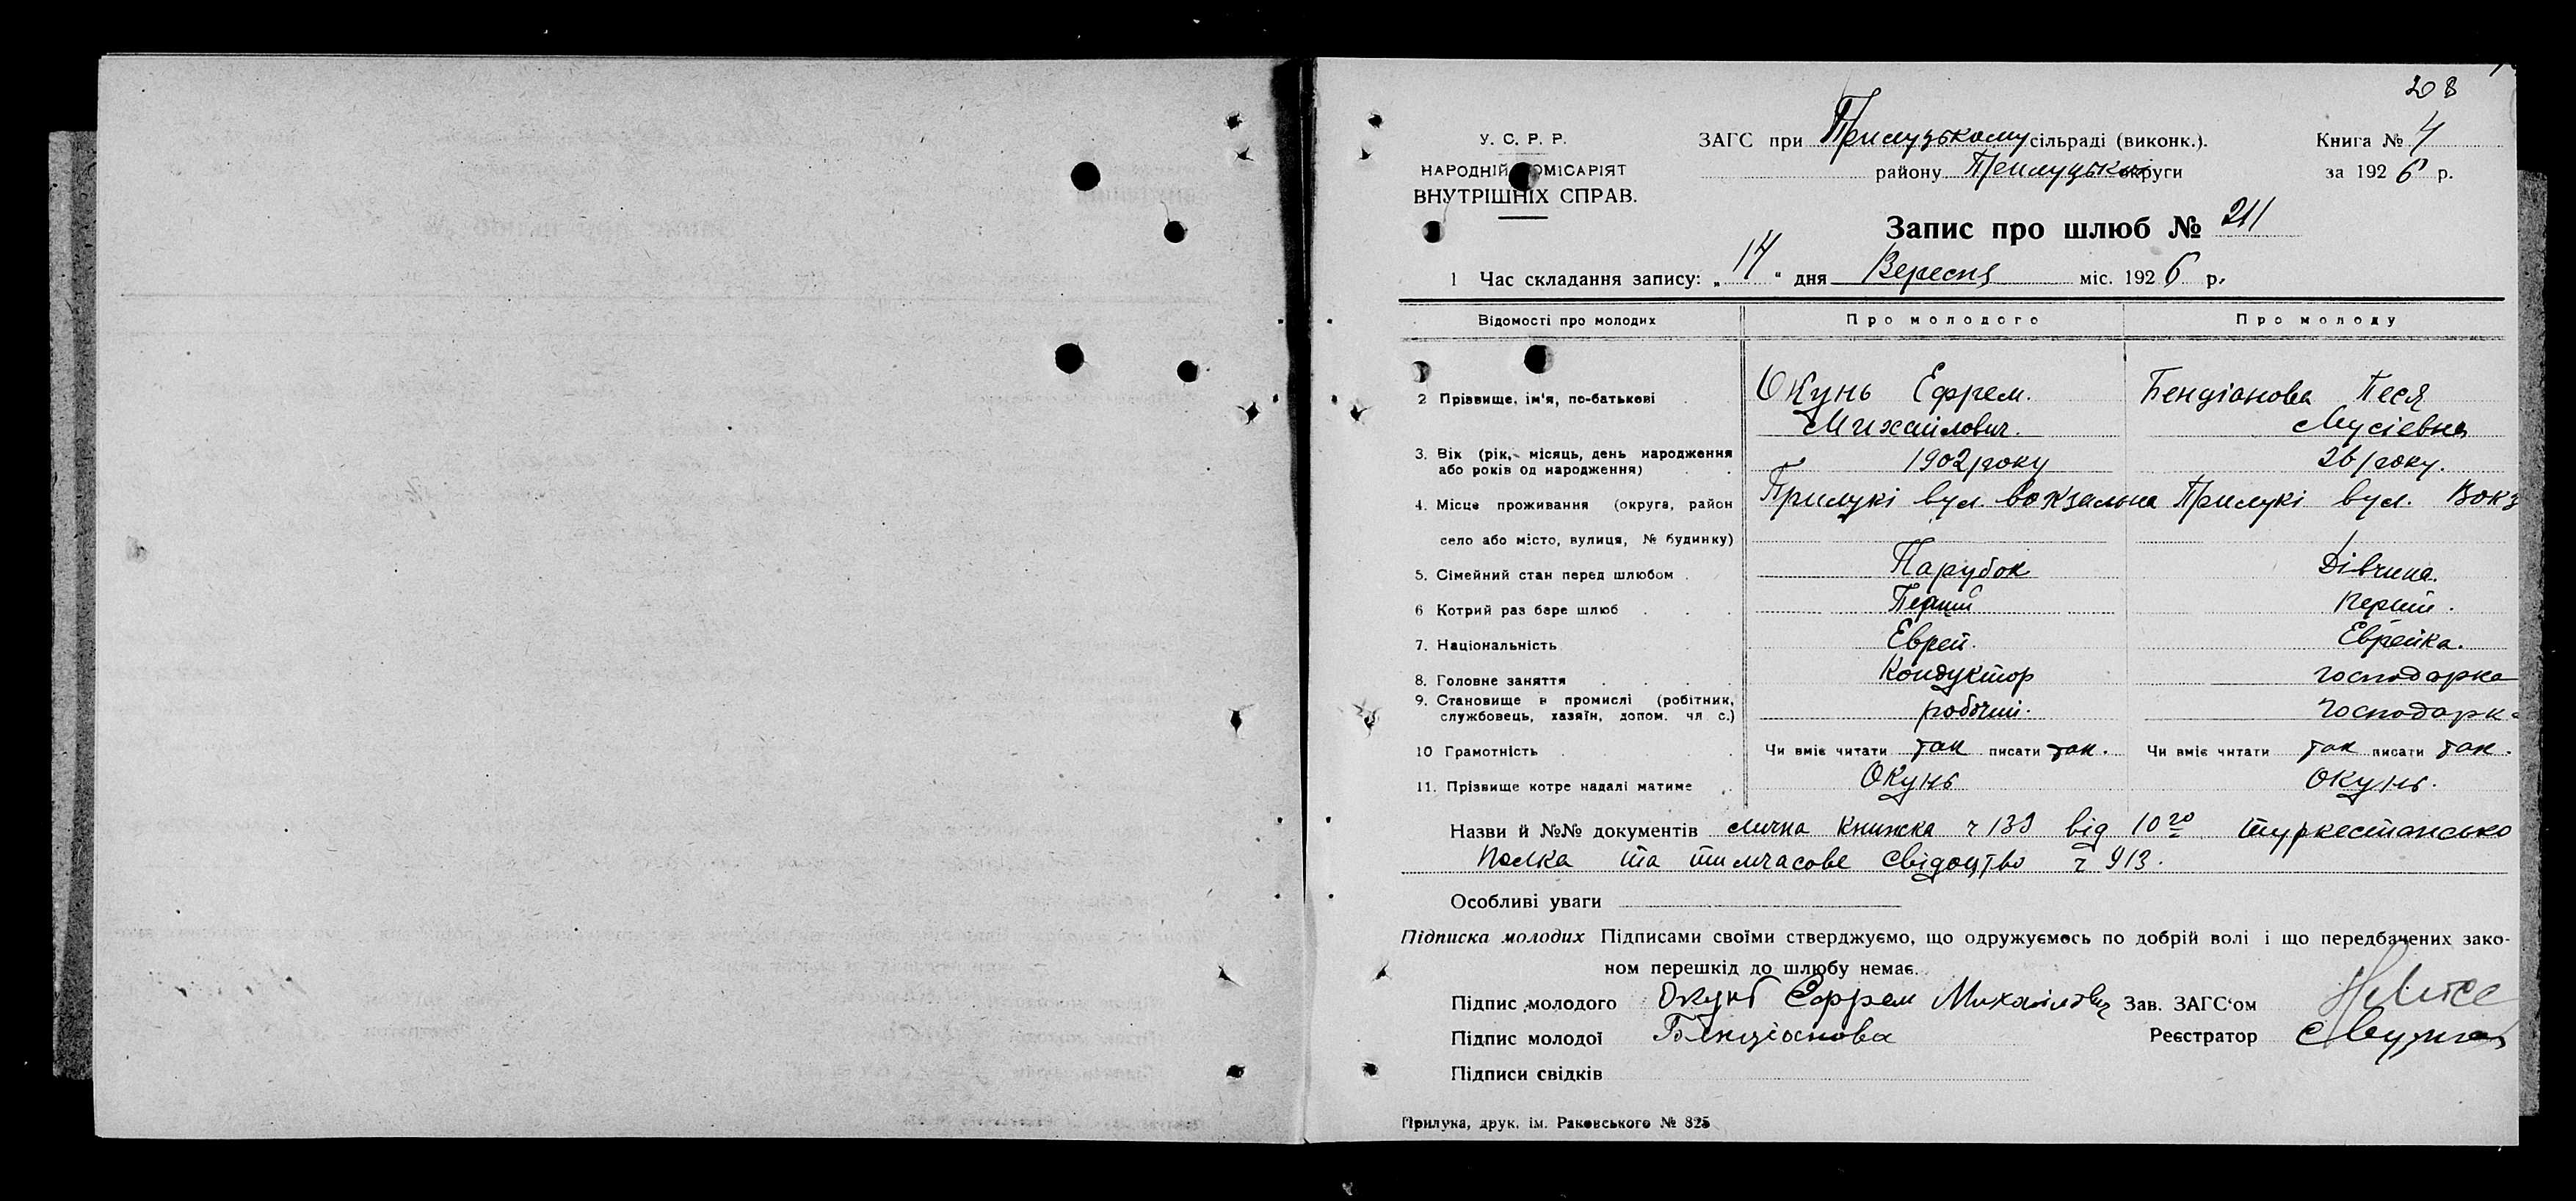 208
У. С. Р. Р.
НАРОДНІЙ КОМІСАРІЯТ
ВНУТРІШНІХ СПРАВ.
ЗАГС при Прилуцькому сільраді (виконк.).
району Прилуцької округи
Книга № 4
за 1926 р.
Запис про шлюб № 211
1 Час складання запису: „14" дня Вересня міс. 1926 р.
Відомості про молодих Про молодого Про молоду
2 Прізвище, ім'я, по-батькові Окунь Ефрем. Бендіанова Песя
Михайлович. Мусіевна
3. Вік (рік, місяць, день народження
або років од народження) 1902 року 26 року.
4. Місце проживання (округа, район Прилукі вул. Вокзальна Прилукі вул. Вокз
село або місто, вулиця, № будинку)
5. Сімейний стан перед шлюбом Парубок Дівчина.
6 Котрий раз бере шлюб Перший Перший.
7. Національність Еврей. Еврейка.
8. Головне заняття Кондуктор господарка
9. Становище в промислі (робітник,
службовець, хазяїн, допом. чл с.) робочий. господарка
10 Грамотність Чи вміє читати так писати так. Чи вміє читати так писати так.
11. Прізвище котре надалі матиме Окунь Окунь.
Назви й №№ документів лична книжка ч 133 від 10го туркестансько
Полка та тимчасове свідоцтво ч 913.
Особливі уваги
Підписка молодих Підписами своїми стверджуємо, що одружуємось по добрій волі і що передбачених зако-
ном перешкід до шлюбу немає.
Підпис молодого Окунь Ефрем Михайлович Зав. ЗАГС'ом
Підпис молодої Бенціонова Реєстратор
Підписи свідків
Прилука, друк. ім. Раковського № 825